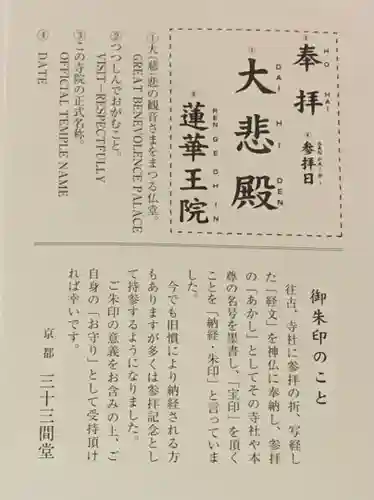 ② 奉拝 HO HAI
④ 参拝日 SAN PAI BI
① 大悲殿 DAI HI DEN
③ 蓮華王院 REN GE OH IN
①大(慈)悲の観音さまをまつる仏堂。
GREAT BENEVOLENCE PALACE
②つつしんでおがむこと。
VISIT－RESPECTFULLY
③この寺院の正式名称。
OFFICIAL TEMPLE NAME
④ DATE
御朱印のこと
往古、寺社に参拝の折、写経し
た「経文」を神仏に奉納し、参拝
の「あかし」としてその寺社や本
尊の名号を墨書し、「宝印」を頂く
ことを「納経・朱印」と言っていま
した。
今でも旧慣により納経される方
もありますが多くは参拝記念とし
て持参するようになりました。
ご朱印の意義をお含みの上、ご
自身の「お守り」として受持頂け
れば幸いです。
京都 三十三間堂